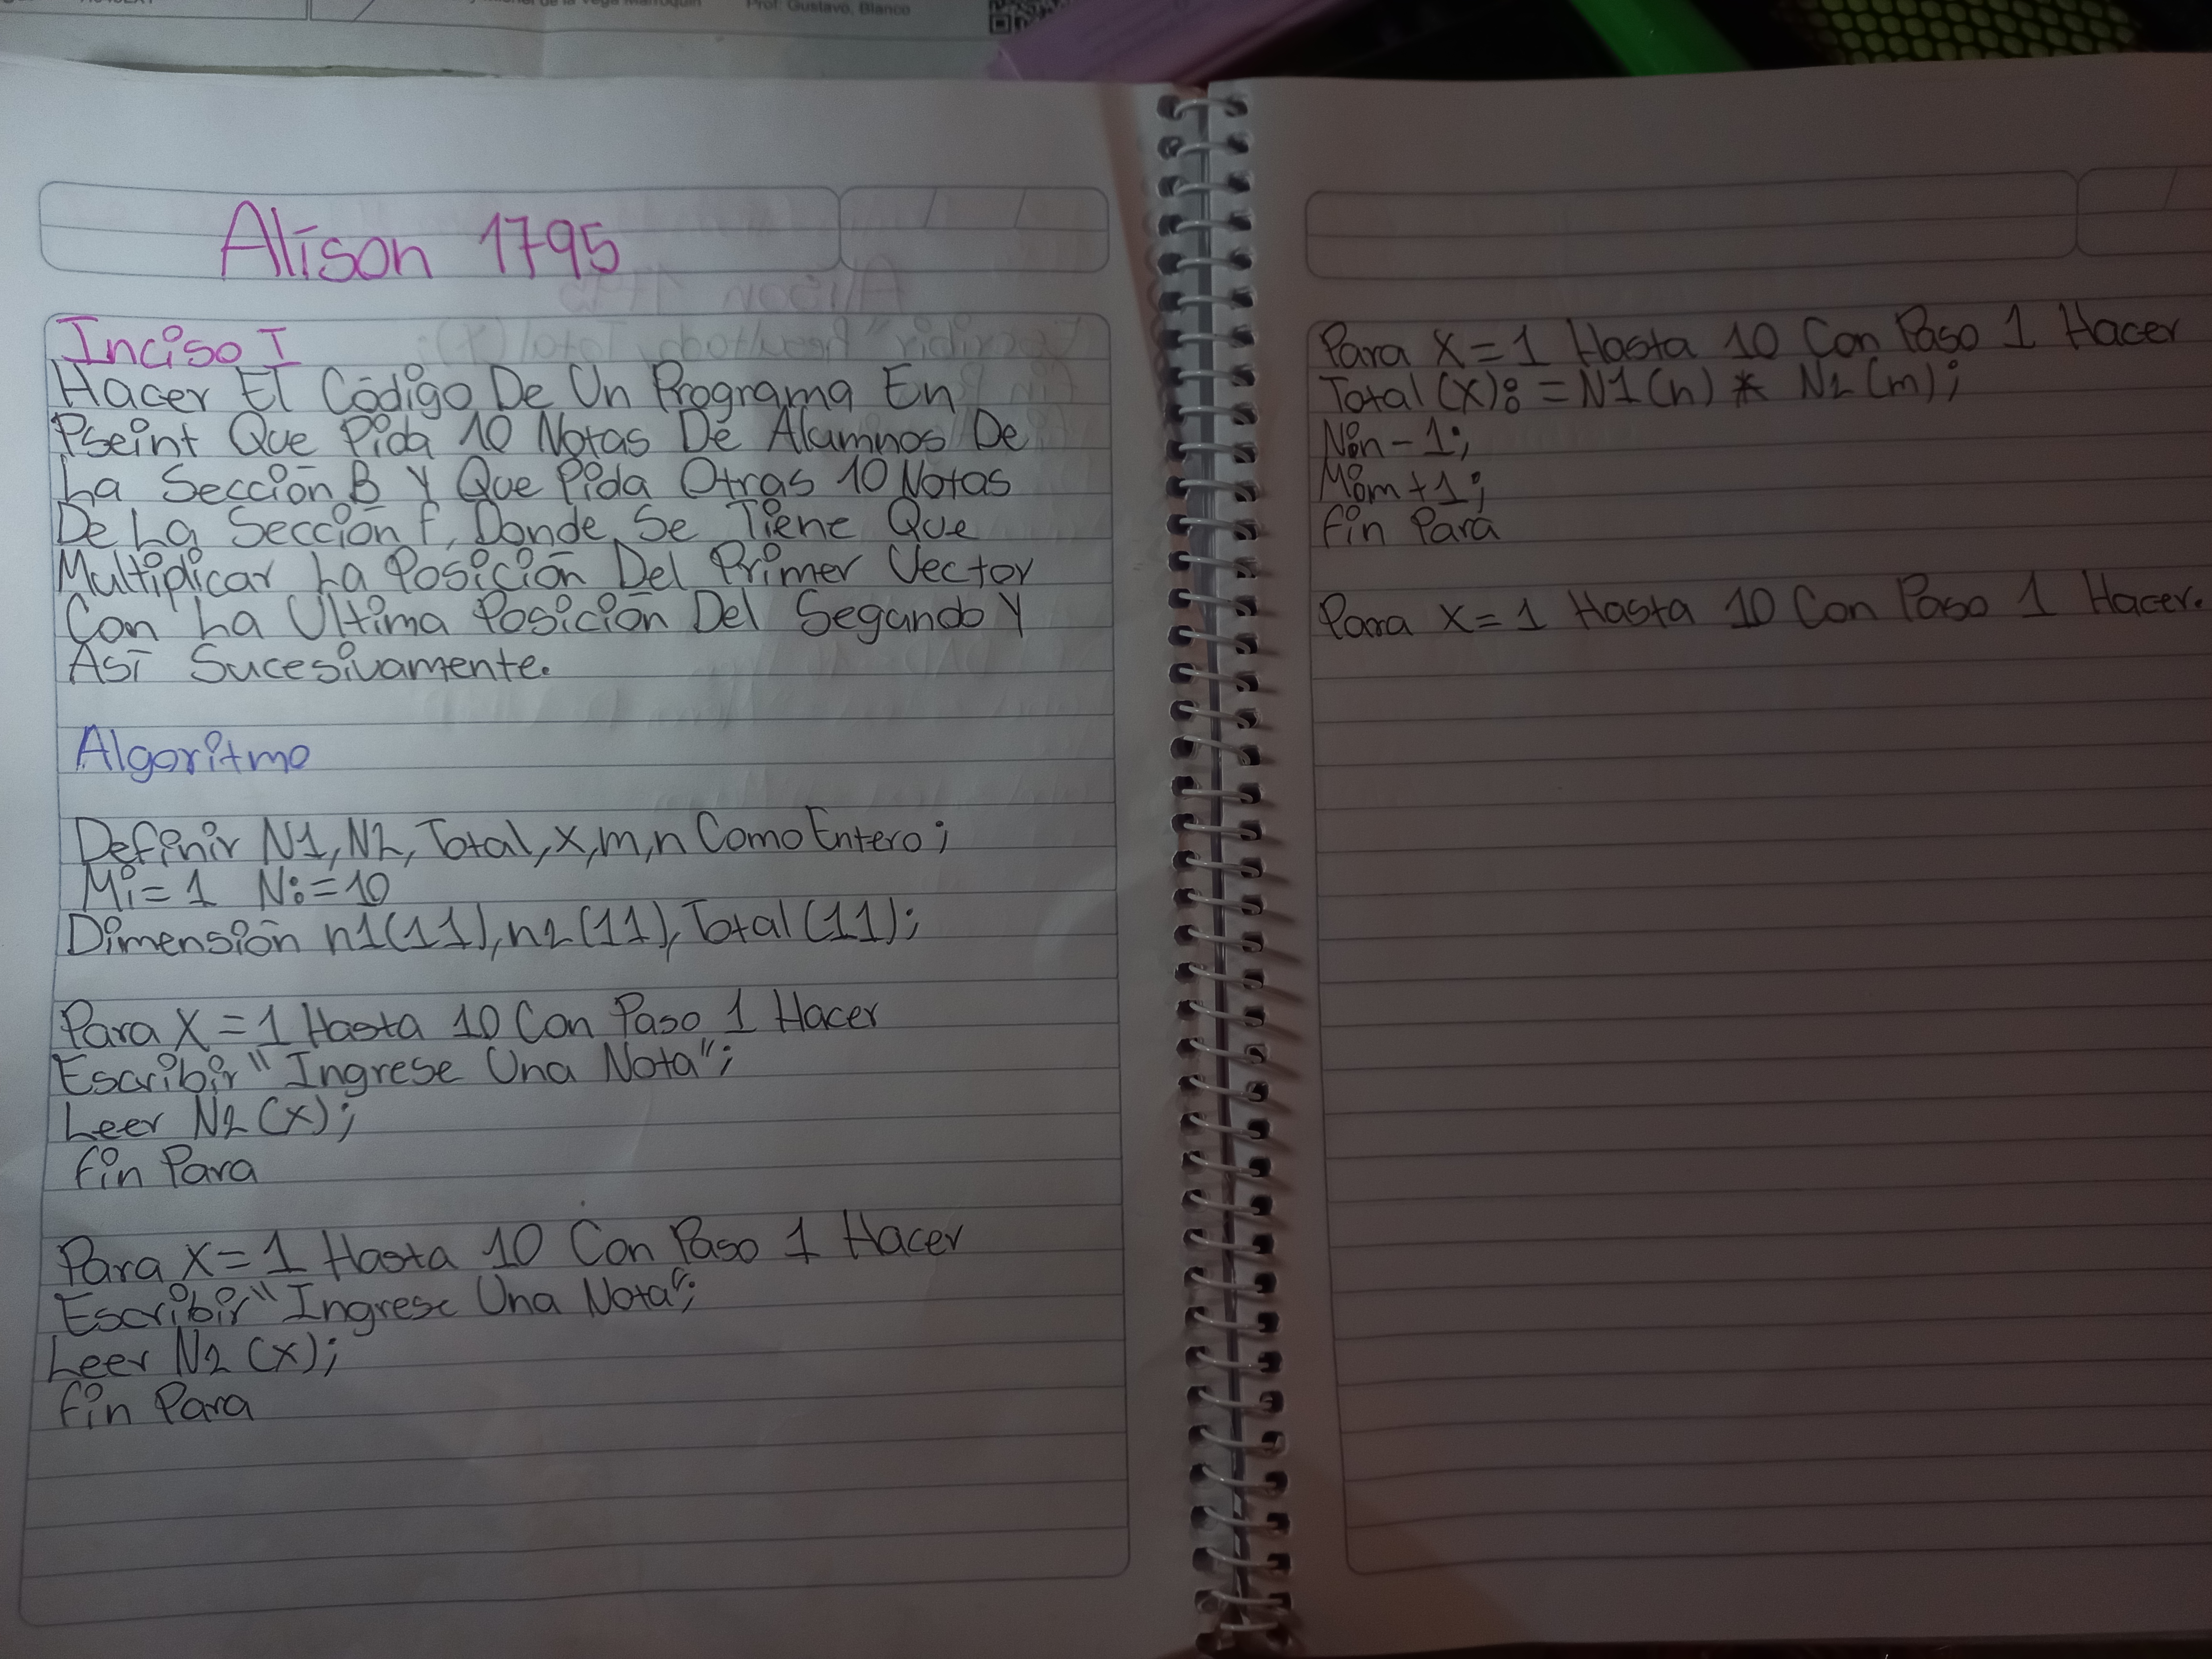 Prof. Gustavo, Blanco
Alison 1795
Inciso I
Hacer El Código De Un Programa En
Pseint Que Pida 10 Notas De Alumnos De
La Sección B Y Que Pida Otras 10 Notas
De La Sección F, Donde Se Tiene Que
Multiplicar La Posición Del Primer Vector
Con La Ultima Posición Del Segundo Y
Así Sucesivamente.
Algoritmo
Definir N1, N2, Total, x, m, n Como Entero;
M:= 1 N:=10
Dimensión n1(11), n2(11), Total (11);
Para X=1 Hasta 10 Con Paso 1 Hacer
Escribir "Ingrese Una Nota";
Leer N2 (x);
Fin Para
Para X=1 Hasta 10 Con Paso 1 Hacer
Escribir "Ingrese Una Nota";
Leer N2 (x);
Fin Para
Para X=1 Hasta 10 Con Paso 1 Hacer
Total (x):=N1(n) * N2 (m);
N:n-1;
M:m+1;
Fin Para
Para X=1 Hasta 10 Con Paso 1 Hacer.